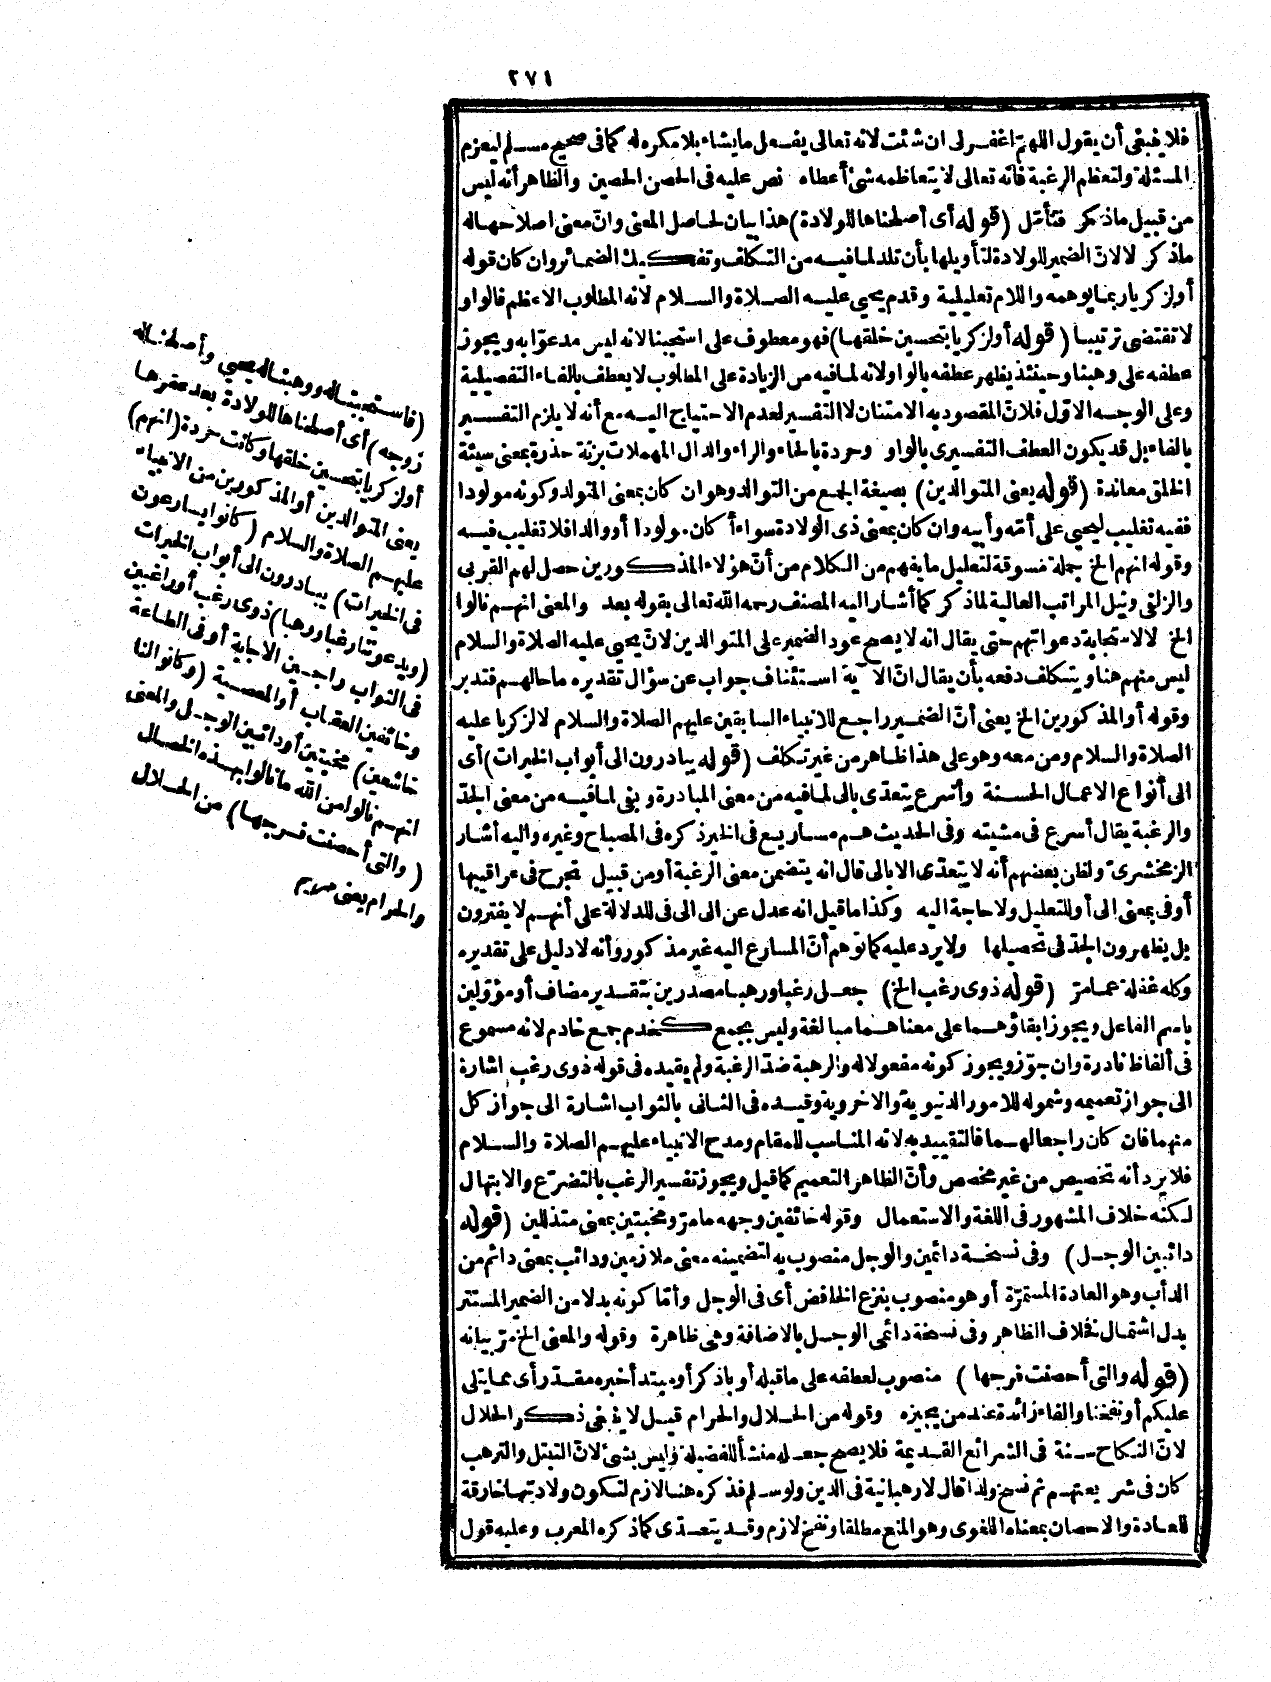 ٢٧١
فلا ينبغى أن يقول اللهمّ اغفر لى ان شئت لانه تعالى يفعل ما يشاء بلا مكره له كما فى صحيح مسلم ليعزم
المسئلة ولتعظم الرغبة فانّه تعالى لا يتعاظمه شئ أعطاه نص عليه فى الحصن الحصين والظاهر أنه ليس
من قبيل ماذكر فتأمّل (قوله أى أصلحناها للولادة) هذا بيان لحاصل المعنى وانّ معنى اصلاحها له
ماذكر لا لانّ الضمير للولادة لتأويلها بأن تلد لما فيه من التكلف وتفكيك الضمائر وان كان قوله
أو لزكريا ربما يوهمه واللام تعليلية وقدم يحيى عليه الصلاة والسلام لانه المطلوب الاعظم فالواو
لا تقتضى ترتيبا (قوله أو لزكريا بتحسين خلقها) فهو معطوف على استجبنا لانه ليس مدعوّا به ويجوز
عطفه على وهبنا وحينئذ يظهر عطفه بالواو لانه لما فيه من الزيادة على المطلوب لا يعطف بالفاء التفصيلية
وعلى الوجه الاوّل فلانّ المقصود به الامتنان لا التفسير لعدم الاحتياج اليه مع أنه لا يلزم التفسير
بالفاء بل قد يكون العطف التفسيرى بالواو وحردة بالحاء والراء والدال المهملات بزنة حذرة بمعنى سيئة
الخلق معاندة (قوله يعنى المتوالدين) بصيغة الجمع من التوالد وهو ان كان بمعنى المتولد وكونه مولودا
ففيه تغليب ليحيى على أمّه وأبيه وان كان بمعنى ذى الولادة سواء أكان مولودا أو والدا فلا تغليب فيه
وقوله انهم الخ جملة مسوقة لتعليل ما يفهم من الكلام من أنّ هؤلاء المذكورين حصل لهم القربى
والزلفى ونيل المراتب العالية لماذكر كما أشار اليه المصنف رحمه الله تعالى بقوله بعد والمعنى انهم نالوا
الخ لا لاستجابة دعواتهم حتى يقال انه لا يصح عود الضمير على المتوالدين لانّ يحيى عليه الصلاة والسلام
ليس منهم هنا ويتكلف دفعه بأن يقال انّ الآية استئناف جواب عن سؤال تقديره ما حالهم فتدبر
وقوله أو المذكورين الخ يعنى أنّ الضمير راجع للانبياء السابقين عليهم الصلاة والسلام لا لزكريا عليه
الصلاة والسلام ومن معه وهو على هذا ظاهر من غير تكلف (قوله يبادرون الى أبواب الخيرات) أى
الى أنواع الاعمال الحسنة وأسرع يتعدّى بالى لما فيه من معنى المبادرة وبفى لما فيه من معنى الجدّ
والرغبة يقال أسرع فى مشيته وفى الحديث هم مساريع فى الخير ذكره فى المصباح وغيره واليه أشار
الزمخشرىّ ولظن بعضهم أنه لا يتعدّى الا بالى قال انه يتضمن معنى الرغبة أو من قبيل يجرح فى عراقيبها
أو فى بمعنى الى أو للتعليل ولا حاجة اليه وكذا ما قيل انه عدل عن الى الى فى للدلالة على أنهم لا يفترون
بل يظهرون الجدّ فى تحصيلها ولا يرد عليه كما توهم أنّ المسارع اليه غير مذكور وأنه لا دليل على تقديره
وكله غفلة عمامرّ (قوله ذوى رغب الخ) جعل رغبا ورهبا مصدرين بتقدير مضاف أو مؤوّلين
باسم الفاعل ويجوز ابقاؤهما على معناهما مبالغة وليس بجمع كخدم جمع خادم لانه مسموع
فى ألفاظ نادرة وان جوّز ويجوز كونه مفعولا له والرهبة ضدّ الرغبة ولم يقيده فى قوله ذوى رغب اشارة
الى جواز تعميمه وشموله للامور الدنيوية والاخروية وقيده فى الثانى بالثواب اشارة الى جواز كل
منهما فان كان راجعا لهما فالتقييد به لانه المناسب للمقام ومدح الانبياء عليهم الصلاة والسلام
فلا يرد أنه تخصيص من غير مخصص وأنّ الظاهر التعميم كما قيل ويجوز تفسير الرغب بالتضرّع والابتهال
لكنه خلاف المشهور فى اللغة والاستعمال وقوله خائفين وجهه مامرّ ومخبتين بمعنى متذللين (قوله
دائبين الوجل) وفى نسخة دائمين والوجل منصوب به لتضمينه معنى ملازمين ودائب بمعنى دائم من
الدأب وهو العادة المستمرّة أو هو منصوب بنزع الخافض أى فى الوجل وأمّا كونه بدلا من الضمير المستتر
بدل اشتمال فخلاف الظاهر وفى نسخة دائمى الوجل بالاضافة وهى ظاهرة وقوله والمعنى الخ مرّ بيانه
(قوله والتى أحصنت فرجها) منصوب لعطفه على ماقبله أو باذكر أو مبتدأ خبره مقدّر أى مما يتلى
عليكم أو نفخنا والفاء زائدة عند من يجيزه وقوله من الحلال والحرام قيل لا ينبغى ذكر الحلال
لانّ النكاح سنة فى الشرائع القديمة فلا يصح جعله منشأ للفضيلة وليس بشئ لانّ التبتل والترهب
كان فى شريعتهم ثم نسخ ولذا قال لا رهبانية فى الدين ولو سلم فذكره هنا لازم لتكون ولادتها خارقة
للعادة والاحصان بمعناه اللغوى وهو المنع مطلقا ونفخ لازم وقد يتعدّى كماذكره المعرب وعليه قول
(فاستجبناله ووهبناله يحيى وأصلحناله
زوجه) أى أصلحناها للولادة بعد عقرها
أو لزكريا بتحسين خلقها وكانت حردة (انهم)
يعنى المتوالدين أو المذكورين من الانبياء
عليهم الصلاة والسلام (كانوا يسارعون
فى الخيرات) يبادرون الى أبواب الخيرات
(ويدعوننا رغبا ورهبا) ذوى رغب أو راغبين
فى الثواب راجين الاجابة أو فى الطاعة
وخائفين العقاب أو المعصية (وكانوا لنا
خاشعين) مخبتين أو دائبين الوجل والمعنى
انهم نالوا من الله ما نالوا بهذه الخصال
(والتى أحصنت فرجها) من الحلال
والحرام يعنى مريم